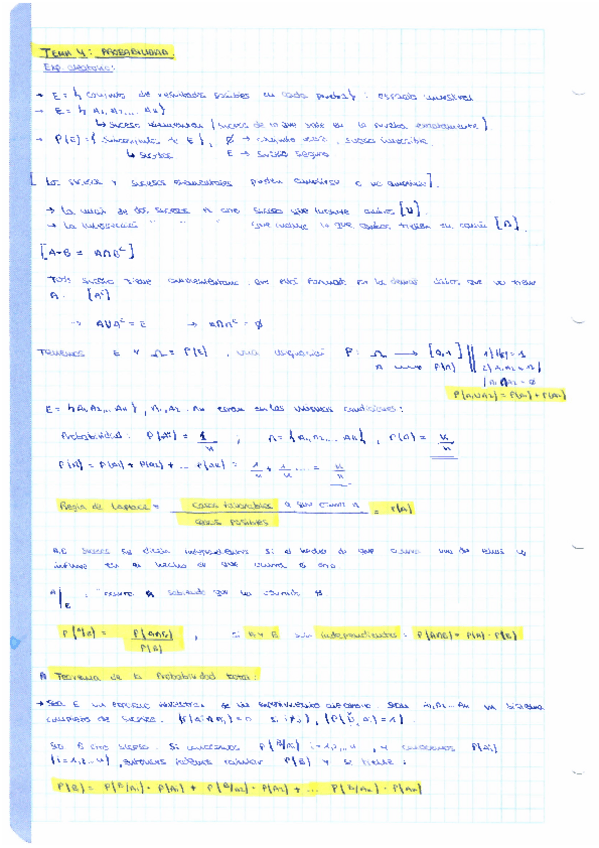 TEMA 4: PROBABILIDAD.
Exp. aleatorio:
→ E = { conjunto de resultados posibles en cada prueba } : espacio muestral
→ E = { A1, A2, ... An }
↳ Suceso elemental
→ P(E) = { Subconjuntos de E }, Ø → conjunto vacío, suceso imposible.
↳ Sucesos E → Suceso seguro
[ Los sucesos y sucesos elementales pueden
→ La unión de dos sucesos es otro suceso que incluye ambos [U].
→ La intersección " " " que incluye lo que ambos tienen en común [∩].
[A-B = A∩B^c]
Todo suceso tiene complementario que está formado por los demás que no tiene
A. [A^c]
→ AUA^c = E → A∩A^c = Ø
Tenemos E y Ω = P(E), una asignación P: Ω → [0,1] 1) P(E) = 1
A → P(A)
A1∩A2 = Ø
P(A1UA2) = P(A1) + P(A2)
E = {A1, A2, ... An}, A1, A2.. An están en las mismas condiciones:
Probabilidad: P(Ai) = 1/n ; A = {A1, A2, ... Ak}, P(A) = k/n
P(A) = P(A1) + P(A2) + ... P(Ak) = 1/n + 1/n .... = k/n
Regla de Laplace = casos favorables a que ocurra A / casos posibles = P(A)
A,B sucesos se dicen independientes si el hecho de que ocurra uno de ellos no
influye en el hecho de que ocurra el otro.
A/B : ocurre A sabiendo que ha ocurrido B
P(A/B) = P(A∩B) / P(B) , si A y B son independientes: P(A∩B) = P(A) · P(B)
Teorema de la Probabilidad total:
→ Sea E un espacio muestral de un experimento aleatorio. Sean A1, A2... An un sistema
completo de sucesos. (P(Ai∩Aj) = 0 si i≠j), (P(U Ai) = 1).
Sea B otro suceso. Si conocemos P(B/Ai) i = 1,2,...n, y conocemos P(Ai)
(i = 1,2...n), entonces podemos calcular P(B) y se tiene:
P(B) = P(B/A1) · P(A1) + P(B/A2) · P(A2) + ... P(B/An) · P(An)